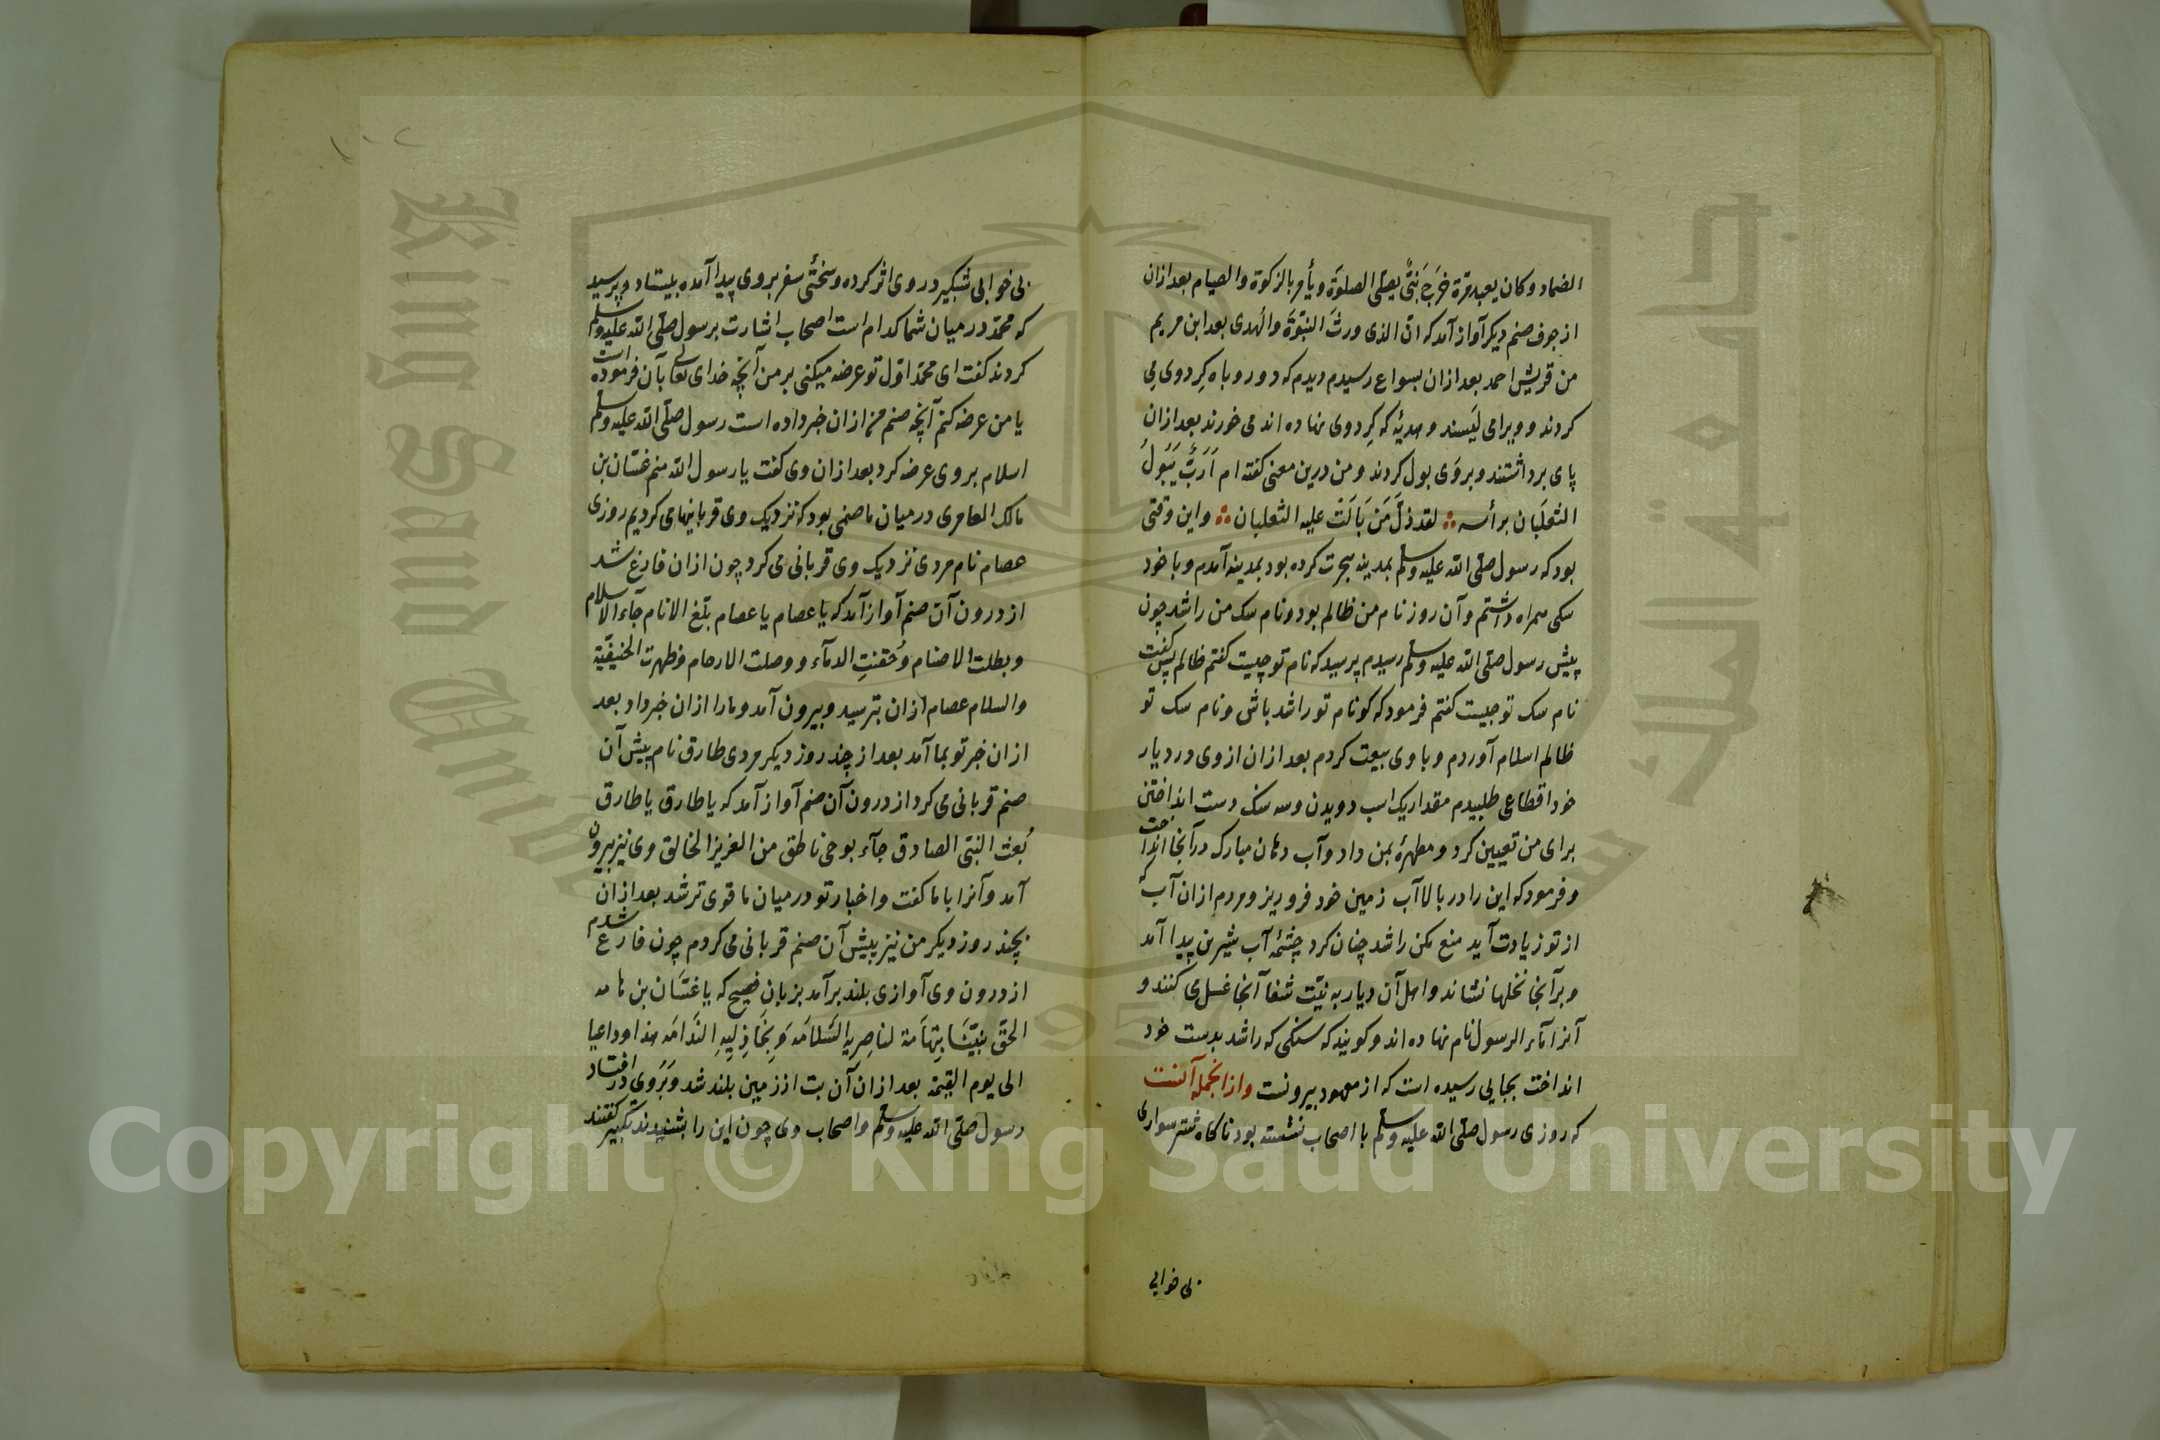 الضماد وکان یعبد مرة خَرَجَ نَبِیٌّ یصلی الصلوة و یأمر بالزکوة والصیام بعد ازان
از جوف صنم دیکر آواز آمد که ان الذی ورث النبوّة والهدی بعد ابن مریم
من قریش احمد بعد ازان بسواع رسیدم دیدم که دو روباه کِرد وی می
کردند و ویرا می لَیسند و هدیهٔ که کِرد وی نهاده اند می خورند بعد ازان
پای برداشتند و بروَی بول کردند و من درین معنی کفته ام اَرَبٌّ یَبُولُ
الثعلَبان برأسه لقد ذلّ مَن بَالَتْ علیه الثعلبان واین وقتی
بود که رسول صلّی الله علیه وسلّم بمدینه هجرت کرده بود بمدینه آمدم و با خود
سکی همراه داشتم و آن روز نام من ظالم بود و نام سک من راشد چون
پیش رسول صلّی الله علیه وسلّم رسیدم پرسید که نام تو چیست کفتم ظالم پس کفت
نام سک تو چیست کفتم فرمود که کو نام تو راشد باش و نام سک تو
ظالم اسلام آوردم و با وی بیعت کردم بعد ازان از وی در دیار
خود اقطاعی طلبیدم مقدار یک اسب دویدن و سه سنک دست انداختن
برای من تعیین کرد و مطهرهٔ بمن داد و آب دهان مبارک در آنجا انداخت
و فرمود که این را در بالا آب زمین خود فرو ریز و مردم ازان آب که
از تو زیادت آید منع مکن راشد چنان کرد چشمهٔ آب شیرین پیدا آمد
و بر آنجا نخلها نشاند و اهل آن دیار به نیّت شفا آنجا غسل می کنند و
آنرا ماء الرسول نام نهاده اند و کویند که سنکی که راشد بدست خود
انداخت بجایی رسیده است که از معهود بیرونست وازانجمله آنست
که روزی رسول صلّی الله علیه وسلّم با اصحاب نشسته بود ناکاه شتر سواری
بی خوابی
بی خوابی شبکیر در وی اثر کرده و سختئ سفر بروی پیدا آمده بیستاد و پرسید
که محمّد در میان شما کدام است اصحاب اشارت برسول صلّی الله علیه وسلّم
کردند کفت ای محمّد اوّل تو عرضه میکنی بر من آنچه خدای تعالی بآن فرموده است
یا من عرضه کنم آنچه صنم من ازان خبر داده است رسول صلّی الله علیه وسلّم
اسلام بروی عرضه کرد بعد ازان وی کفت یا رسول الله منم غسّان بن
مالک العامری در میان ما صنمی بود که نزدیک وی قربانیها می کردیم روزی
عصام نام مردی نزدیک وی قربانی می کرد چون ازان فارغ شد
از درون آن صنم آواز آمد که یا عصام یا عصام بلّغ الانام جآء الاسلام
و بطلت الاصنام وحُقنتِ الدمآء و وصلت الارحام وظهرت الحنیفیّة
والسلام عصام ازان بترسید و بیرون آمد و مارا ازان خبر داد بعد
ازان خبر تو بما آمد بعد از چند روز دیکر مردی طارق نام پیش آن
صنم قربانی می کرد از درون آن صنم آواز آمد که یا طارق یا طارق
بُعث النبیّ الصادق جآء بوحی ناطق من العزیز الخالق وی نیز بیرون
آمد و آنرا باما کفت و اخبار تو در میان ما قوی تر شد بعد ازان
بچند روز دیکر من نیز پیش آن صنم قربانی می کردم چون فارغ شدم
از درون وی آوازی بلند برآمد بزبان فصیح که یا غسّان بن مامه
الحقّ بنبیّنا بِتِهاَمَة لناصِریه السَلامَه وَ بِخَاذِلِیهِ النَدَامَه هذا وداعیا
الی یوم القیمة بعد ازان آن بت از زمین بلند شد و بَروی در افتاد
رسول صلّی الله علیه وسلّم و اصحاب وی چون این را بشنیدند تکبیر کفتند
Copyright © King Saud University
جامعة الملك سعود
King Saud University
1957